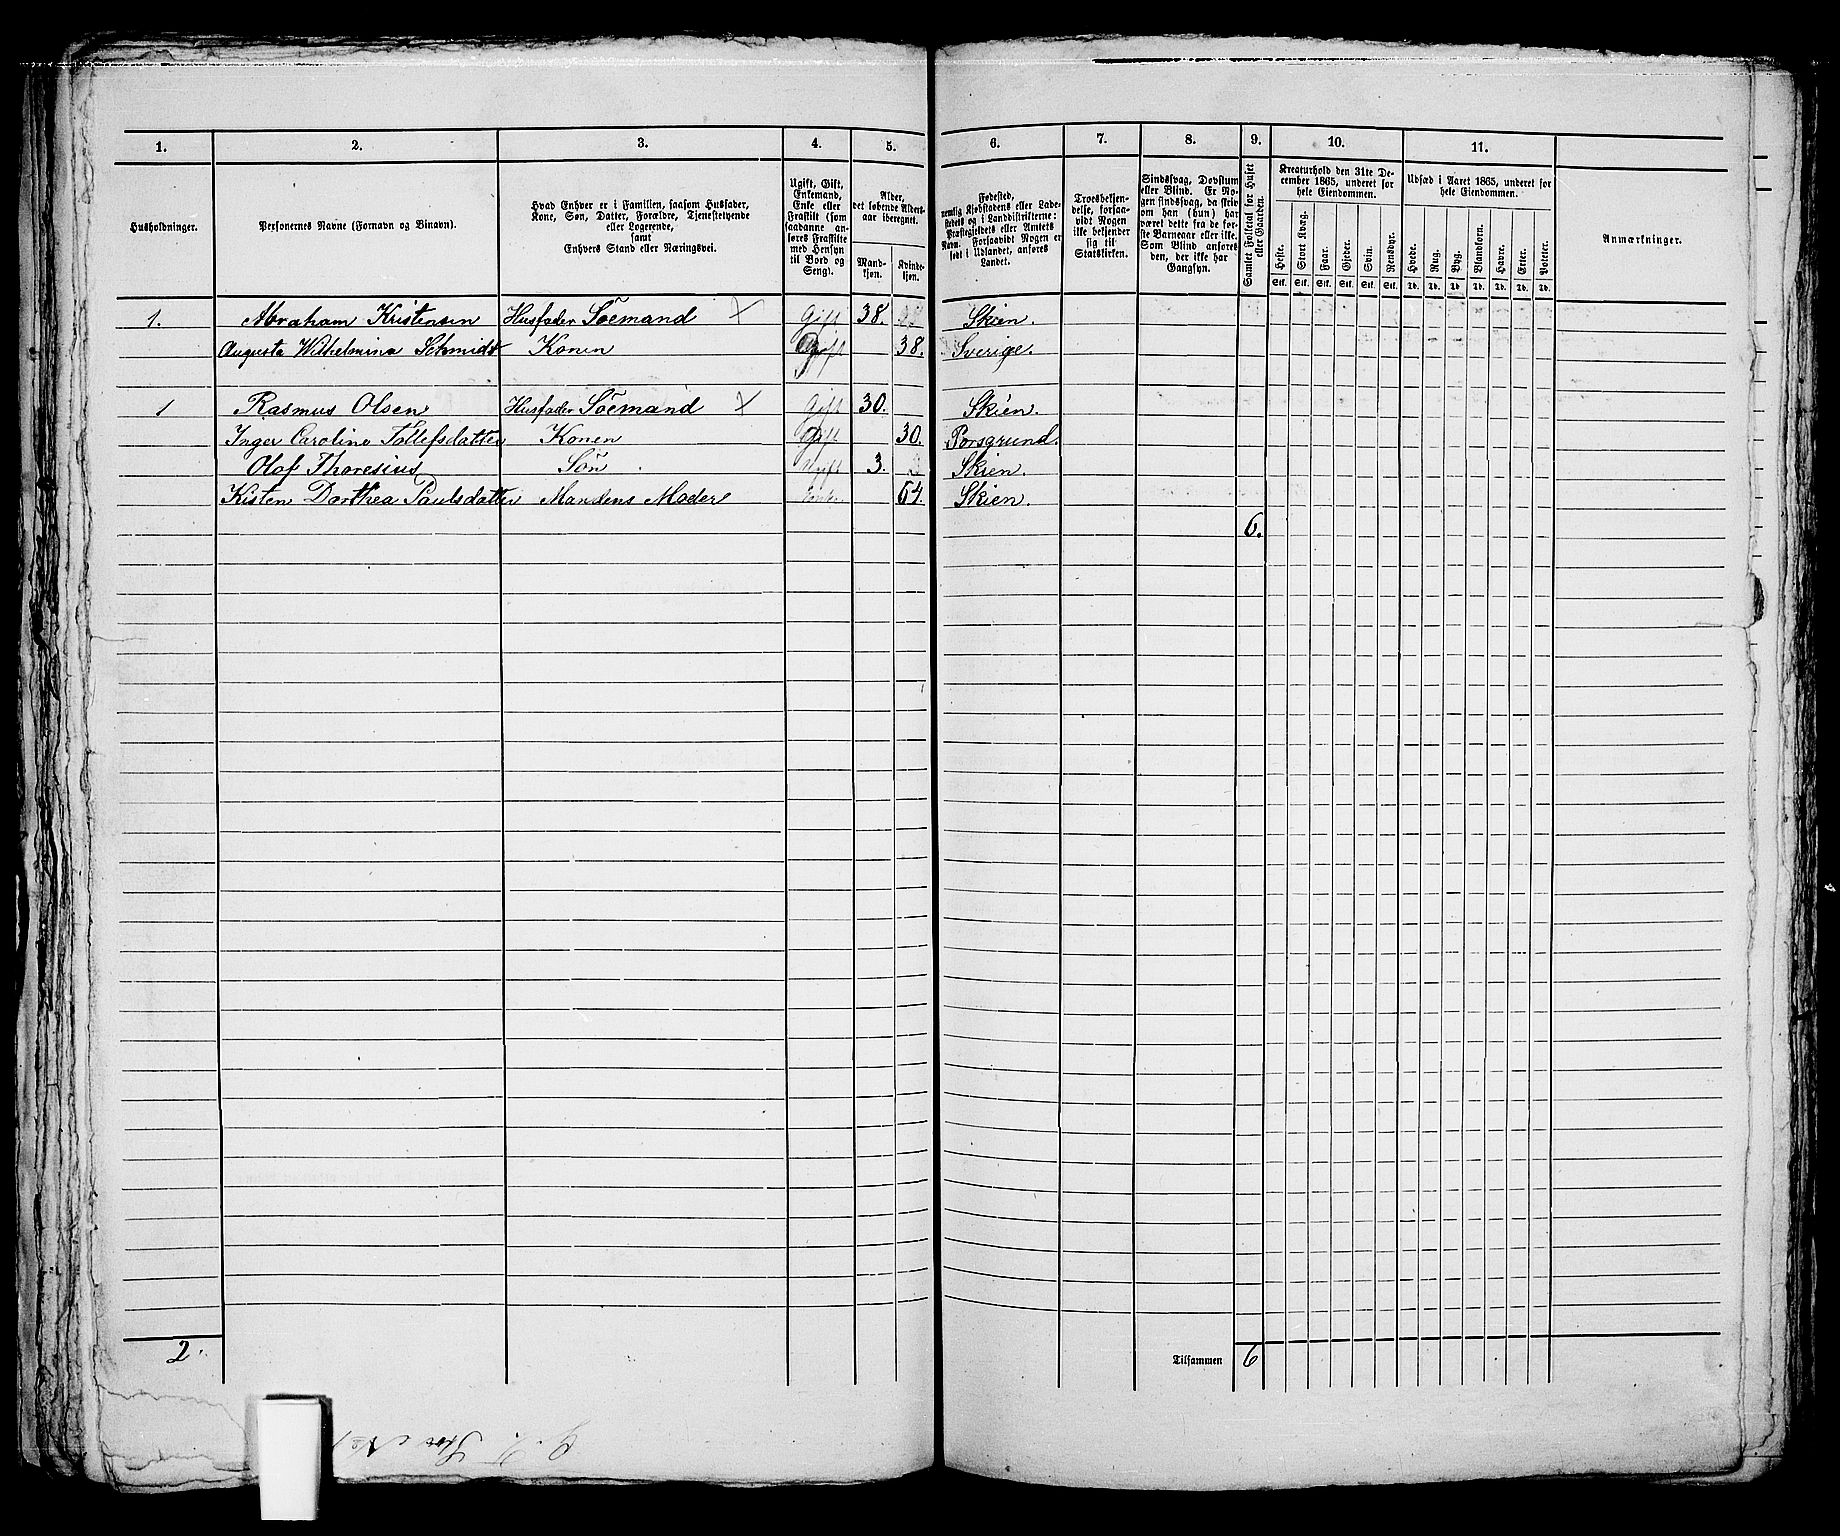 1. 2. 3. 4. 5. 6. 7. 8. 9. 10. 11.
Husholdninger.
Personernes Navne (Fornavn og Binavn).
Hvad Enhver er i Familien, saasom Husfader,
Kone, Søn, Datter, Forældre, Tjenestetyende
eller Logerende,
samt
Enhvers Stand eller Næringsvei.
Ugift, Gift,
Enkemand,
Enke eller
Fraskilt (som
saadanne anføres Fraskilte
med Hensyn
til Bord og
Seng).
Alder,
det løbende Aldersaar iberegnet.
Mandkjøn.
Kvindekjøn.
Fødested,
nemlig Kjøbstadens eller Ladestedets og i Landdistrikterne:
Præstegjeldets eller Amtets
Navn. Forsaavidt Nogen er
født i Udlandet, anføres
Landet.
Troesbekjendelse, forsaavidt Nogen
ikke bekjender
sig til
Statskirken.
Sindssvag, Døvstum
eller Blind. Er Nogen sindssvag, da skriv
om han (hun) har
været dette fra de første Barneaar eller ikke.
Som Blind anføres
den, der ikke har
Gangsyn.
Samlet Folketal for Huset
eller Gaarden.
Kreaturhold den 31te December 1865, underet for
hele Eiendommen.
Heste. Stort Kvæg. Faar. Gjeder. Svin. Rensdyr.
Stk. Stk. Stk. Stk. Stk. Stk.
Udsæd i Aaret 1865, underet for
hele Eiendommen.
Hvede. Rug. Byg. Blandkorn. Havre. Erter. Poteter.
Td. Td. Td. Td. Td. Td. Td.
Anmærkninger.
1. Abraham Kristensen Husfader Söemand Gift 38. Skien.
Augusta Wilhelmina Schmidt Konen Gift 38. Sverige.
1 Rasmus Olsen Husfader Söemand Gift 30. Skien.
Inger Caroline Tollefsdatter Konen Gift 30. Porsgrund.
Olof Thoresius Sön Ugift 3. Skien.
Kisten Dorthea Paulsdatter Mandens Moder 64. Skien.
6.
2. Tilsammen 6